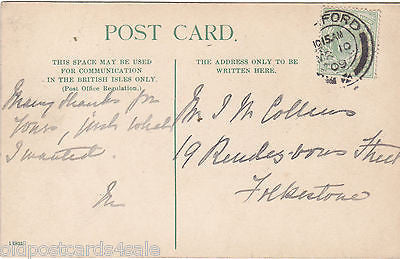 POST CARD.
THIS SPACE MAY BE USED
FOR COMMUNICATION
IN THE BRITISH ISLES ONLY.
(Post Office Regulation.)
THE ADDRESS ONLY TO BE
WRITTEN HERE.
FORD
10 15 AM
10
09
Many thanks for
yours, just what
I wanted.
Mr J M Collins
19 Rendez-vous Street
Folkestone
oldpostcards4sale